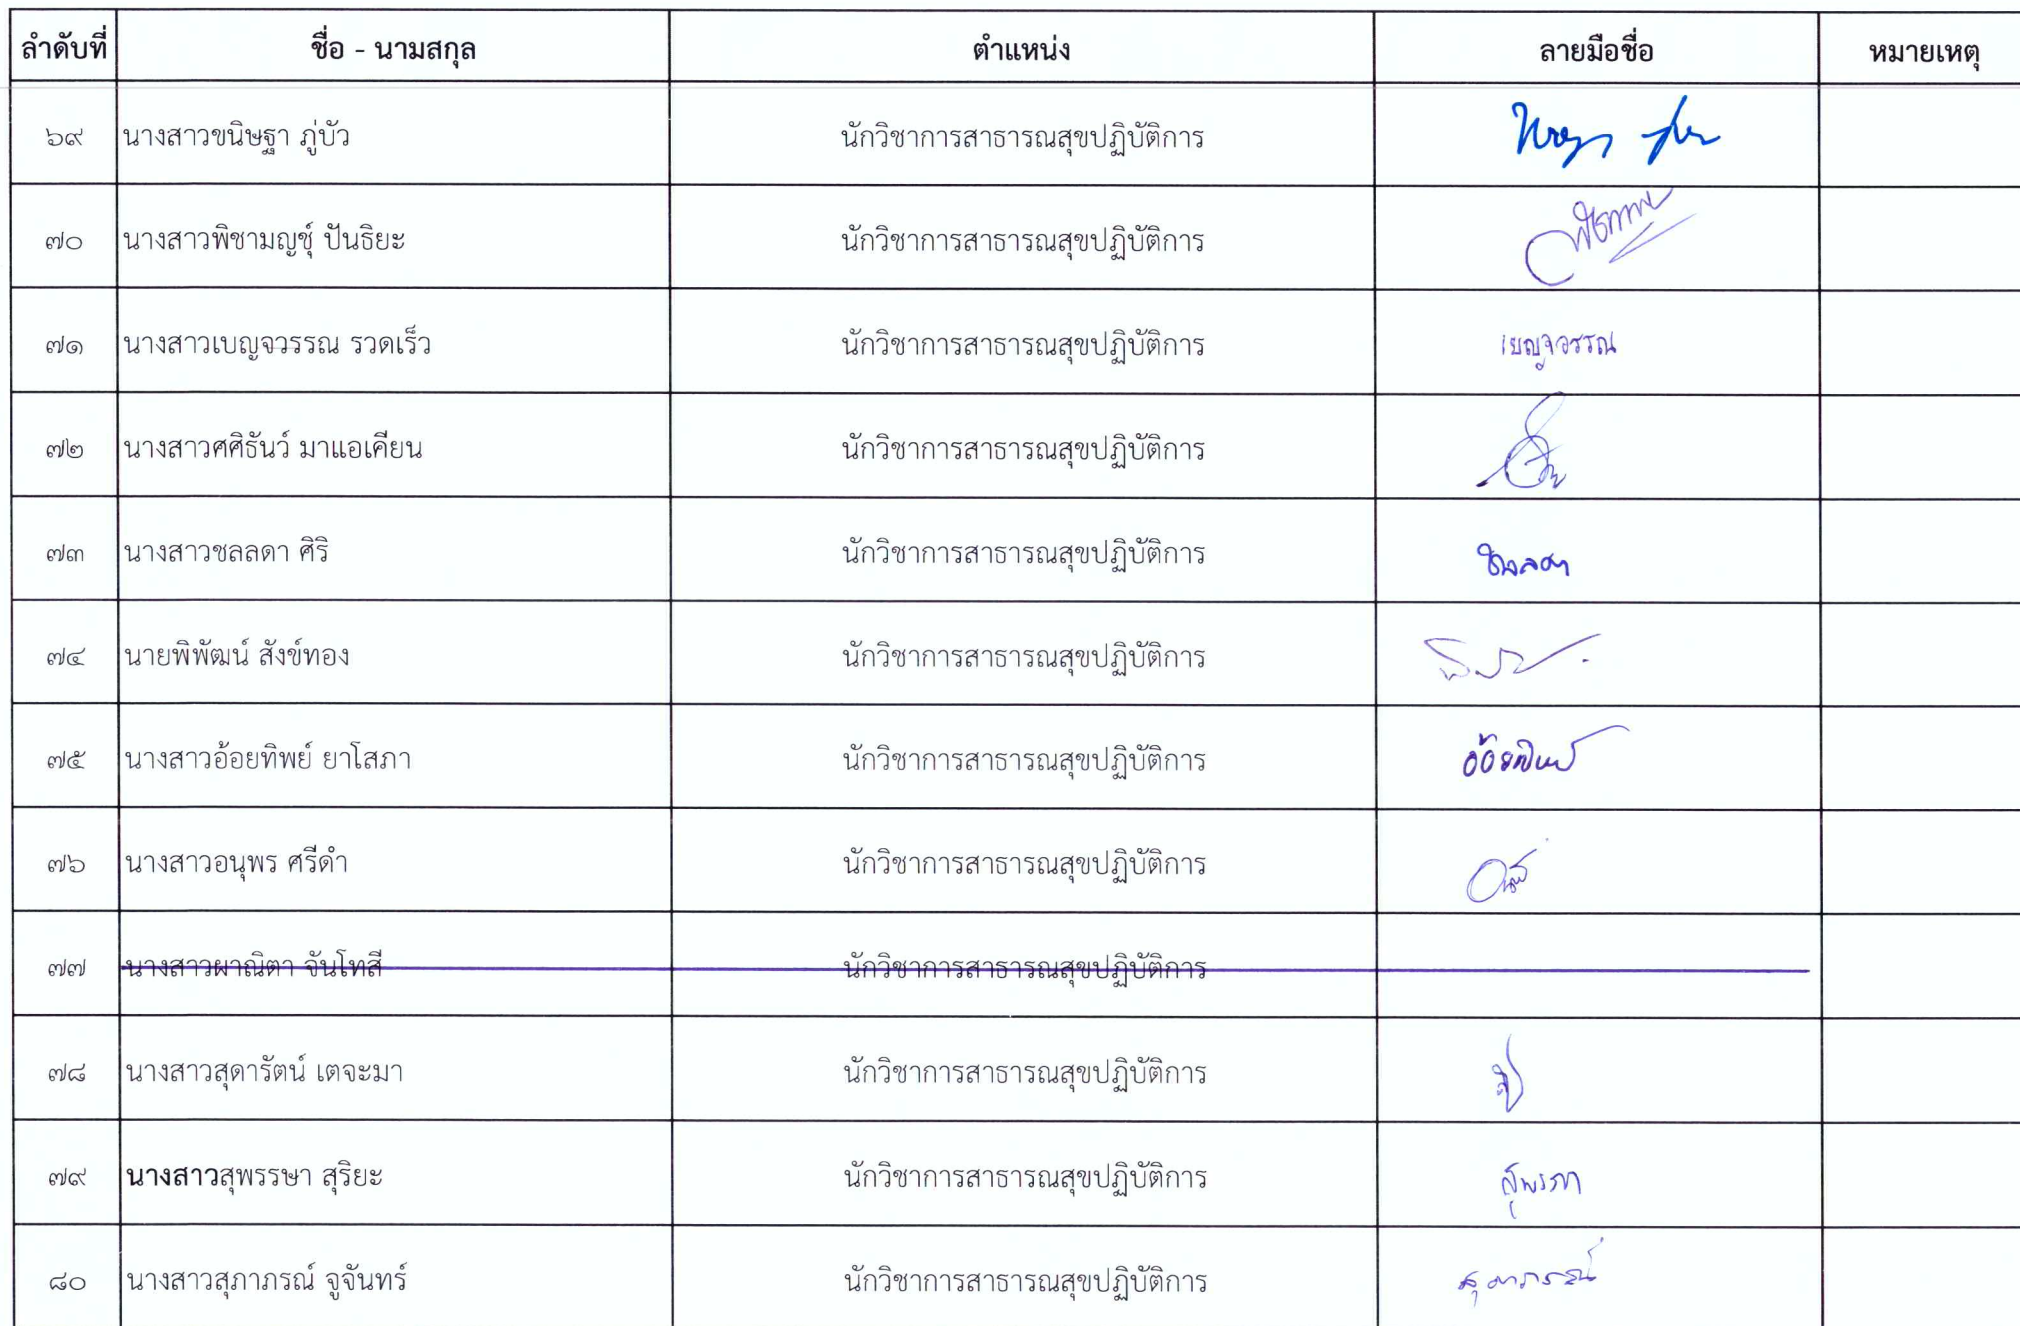 ลำดับที่ ชื่อ - นามสกุล ตำแหน่ง ลายมือชื่อ หมายเหตุ
๖๙ นางสาวขนิษฐา ภู่บัว นักวิชาการสาธารณสุขปฏิบัติการ
๗๐ นางสาวพิชามญชุ์ ปันธิยะ นักวิชาการสาธารณสุขปฏิบัติการ
๗๑ นางสาวเบญจวรรณ รวดเร็ว นักวิชาการสาธารณสุขปฏิบัติการ เบญจวรรณ
๗๒ นางสาวศศิธันว์ มาแอเคียน นักวิชาการสาธารณสุขปฏิบัติการ
๗๓ นางสาวชลลดา ศิริ นักวิชาการสาธารณสุขปฏิบัติการ
๗๔ นายพิพัฒน์ สังข์ทอง นักวิชาการสาธารณสุขปฏิบัติการ
๗๕ นางสาวอ้อยทิพย์ ยาโสภา นักวิชาการสาธารณสุขปฏิบัติการ อ้อยทิพย์
๗๖ นางสาวอนุพร ศรีดำ นักวิชาการสาธารณสุขปฏิบัติการ
๗๗ นางสาวผาณิตา จันโทสี นักวิชาการสาธารณสุขปฏิบัติการ
๗๘ นางสาวสุดารัตน์ เตจะมา นักวิชาการสาธารณสุขปฏิบัติการ
๗๙ นางสาวสุพรรษา สุริยะ นักวิชาการสาธารณสุขปฏิบัติการ
๘๐ นางสาวสุภาภรณ์ จูจันทร์ นักวิชาการสาธารณสุขปฏิบัติการ สุภาภรณ์